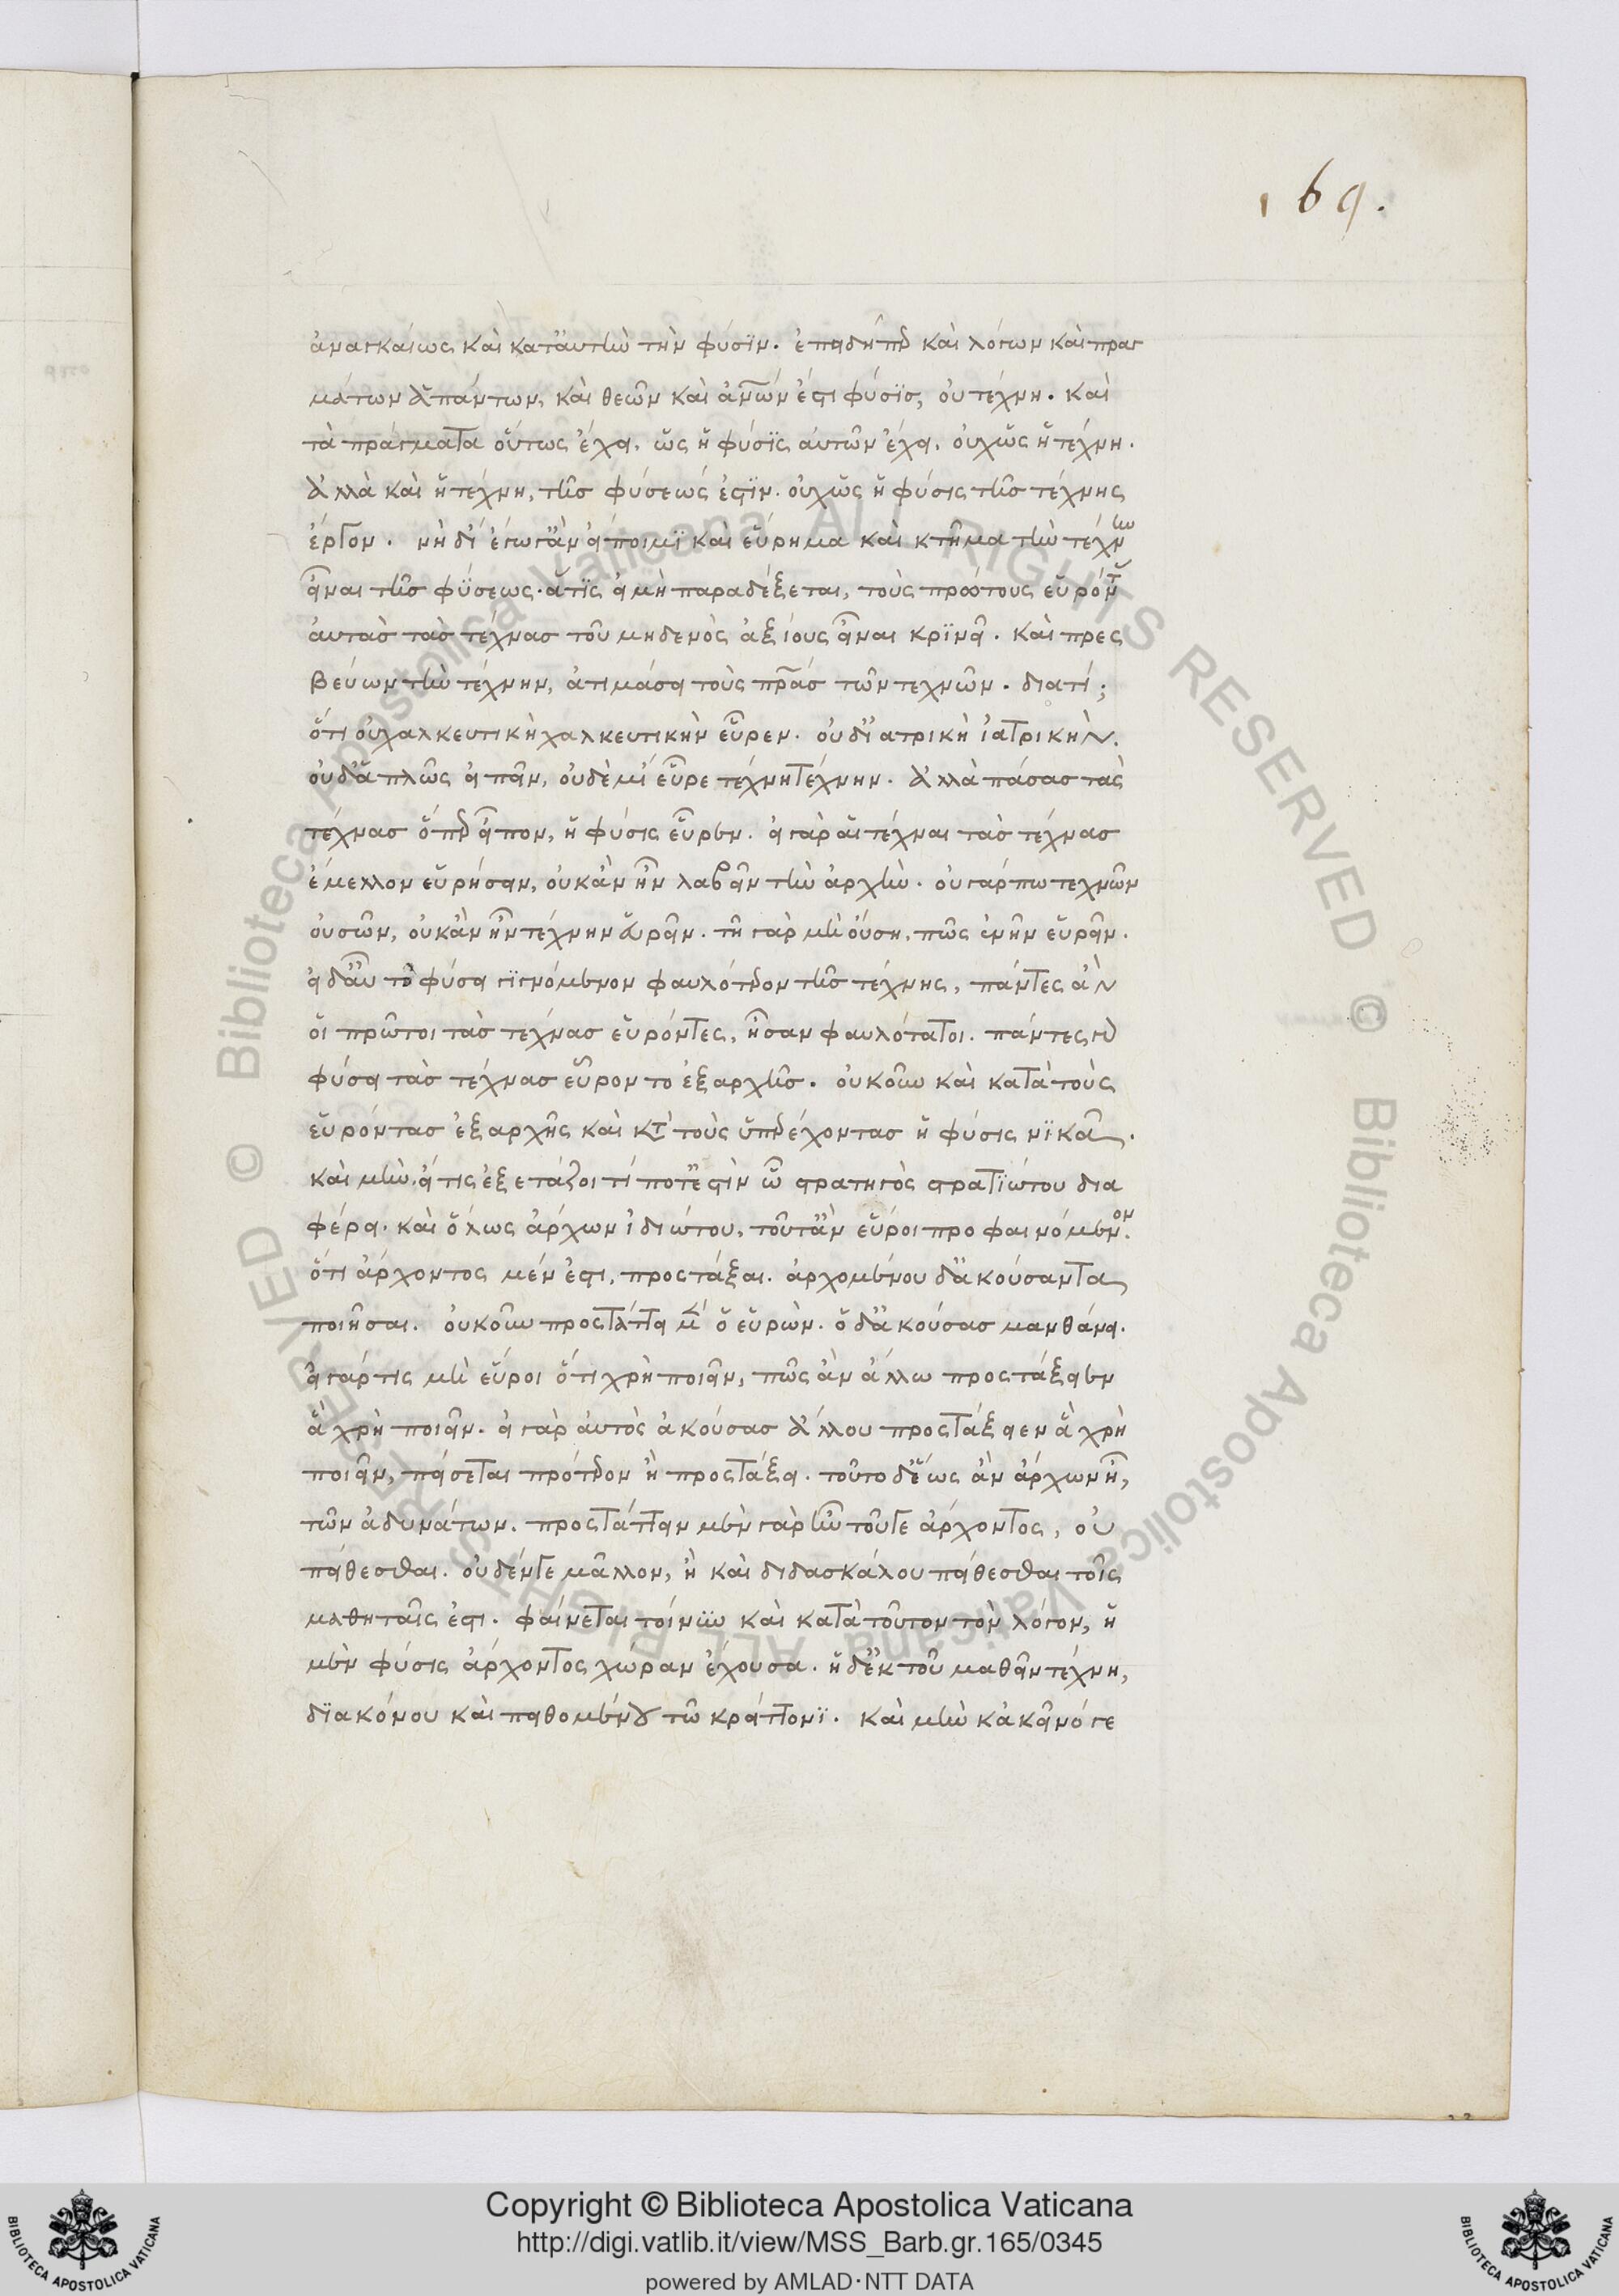 169.
ἀναγκαίως καὶ κατ' αὐτὴν τὴν φύσϊν. ἐπειδήπερ καὶ λόγων καὶ πραγ
μάτων ἁπάντων, καὶ θεῶν καὶ ἀνῶν ἐστι φύσϊς, οὐ τέχνη. καὶ
τὰ πράγματα οὕτως ἔχει, ὡς ἡ φύσϊς αὐτῶν ἔχει, οὐχ ὡς ἡ τέχνη.
ἀλλὰ καὶ ἡ τέχνη, τῆς φύσεώς ἐστϊν. οὐχ ὡς ἡ φύσις τῆς τέχνης
ἔργον. νὴ δί ἔγωγ' ἂν εἴποιμϊ καὶ εὕρημα καὶ κτῆμα τὴν τέχνην
εἶναι τῆς φύσεως. ἅ τϊς εἰ μὴ παραδέξεται, τοὺς πρώτους εὑρόντας
αὐτὰς τὰς τέχνας τοῦ μηδενὸς ἀξίους εἶναι κρϊνεῖ. καὶ πρεσ
βεύων τὴν τέχνην, ἀτιμάσει τοὺς πρας τῶν τεχνῶν. διατί;
ὅτι οὐ χαλκευτικὴ χαλκευτικὴν εὗρεν. οὐδ' ἰατρικὴ ἰατρικὴν.
οὐδ' ἁπλῶς εἰπεῖν, οὐδὲ μί' εὗρε τέχνη τέχνην. ἀλλὰ πάσας τὰς
τέχνας ὅπερ εἶπον, ἡ φύσις εὗρεν. εἰ γὰρ αἱ τέχναι τὰς τέχνας
ἔμελλον εὑρήσειν, οὐκ ἂν ἦν λαβεῖν τὴν ἀρχὴν. οὐ γάρ πω τεχνῶν
οὐσῶν, οὐκ ἂν ἦν τέχνην εὑρεῖν. τῇ γὰρ μὴ οὔσῃ, πῶς ἐνῆν εὑρεῖν.
εἰ δ' αὖ τὸ φύσει γϊγνόμενον φαυλότερον τῆς τέχνης, πάντες ἂν
οἱ πρῶτοι τὰς τέχνας εὑρόντες, ἦσαν φαυλότατοι. πάντες γὰρ
φύσει τὰς τέχνας εὕροντο ἐξαρχῆς. οὐκοῦν καὶ κατὰ τοὺς
εὑρόντας ἐξαρχῆς καὶ κτ τοὺς ὑπερέχοντας ἡ φύσις νϊκᾷ.
καὶ μὴν, εἴ τις ἐξετάζοι τί ποτ' ἐστὶν ᾧ στρατηγὸς στρατϊώτου δια
φέρει. καὶ ὅλως ἄρχων ἰδιώτου, τοῦτ' ἂν εὕροι προφαινόμενον.
ὅτι ἄρχοντος μέν ἐστι, προστάξαι. ἀρχομένου δ' ἀκούσαντα
ποιῆσαι. οὐκοῦν προστάττει μὲν ὁ εὑρὼν. ὁ δ' ἀκούσας μανθάνει.
εἰ γάρ τις μὴ εὕροι ὅτι χρὴ ποιεῖν, πῶς ἂν ἄλλω προστάξειεν
ἃ χρὴ ποιεῖν. εἰ γὰρ αὐτὸς ἀκούσας ἄλλου προστάξειεν ἃ χρὴ
ποιεῖν, πείσεται πρότερον ἢ προστάξει. τοῦτο δ' ἕως ἂν ἄρχων ᾖ,
τῶν ἀδυνάτων. προστάττειν μὲν γὰρ ἦν τοῦγε ἄρχοντος, οὐ
πείθεσθαι. οὐδέν γε μᾶλλον, ἢ καὶ διδασκάλου πείθεσθαι τοῖς
μαθηταῖς ἐστι. φαίνεται τοίνυν καὶ κατὰ τοῦτον τὸν λόγον, ἡ
μὲν φύσις ἄρχοντος χώραν ἔχουσα. ἡ δ' ἐκ τοῦ μαθεῖν τέχνη,
δϊακόνου καὶ πειθομένου τῶ κρείττονϊ. καὶ μὴν κἀκεῖνό γε
Copyright © Biblioteca Apostolica Vaticana
http://digi.vatlib.it/view/MSS_Barb.gr.165/0345
powered by AMLAD·NTT DATA